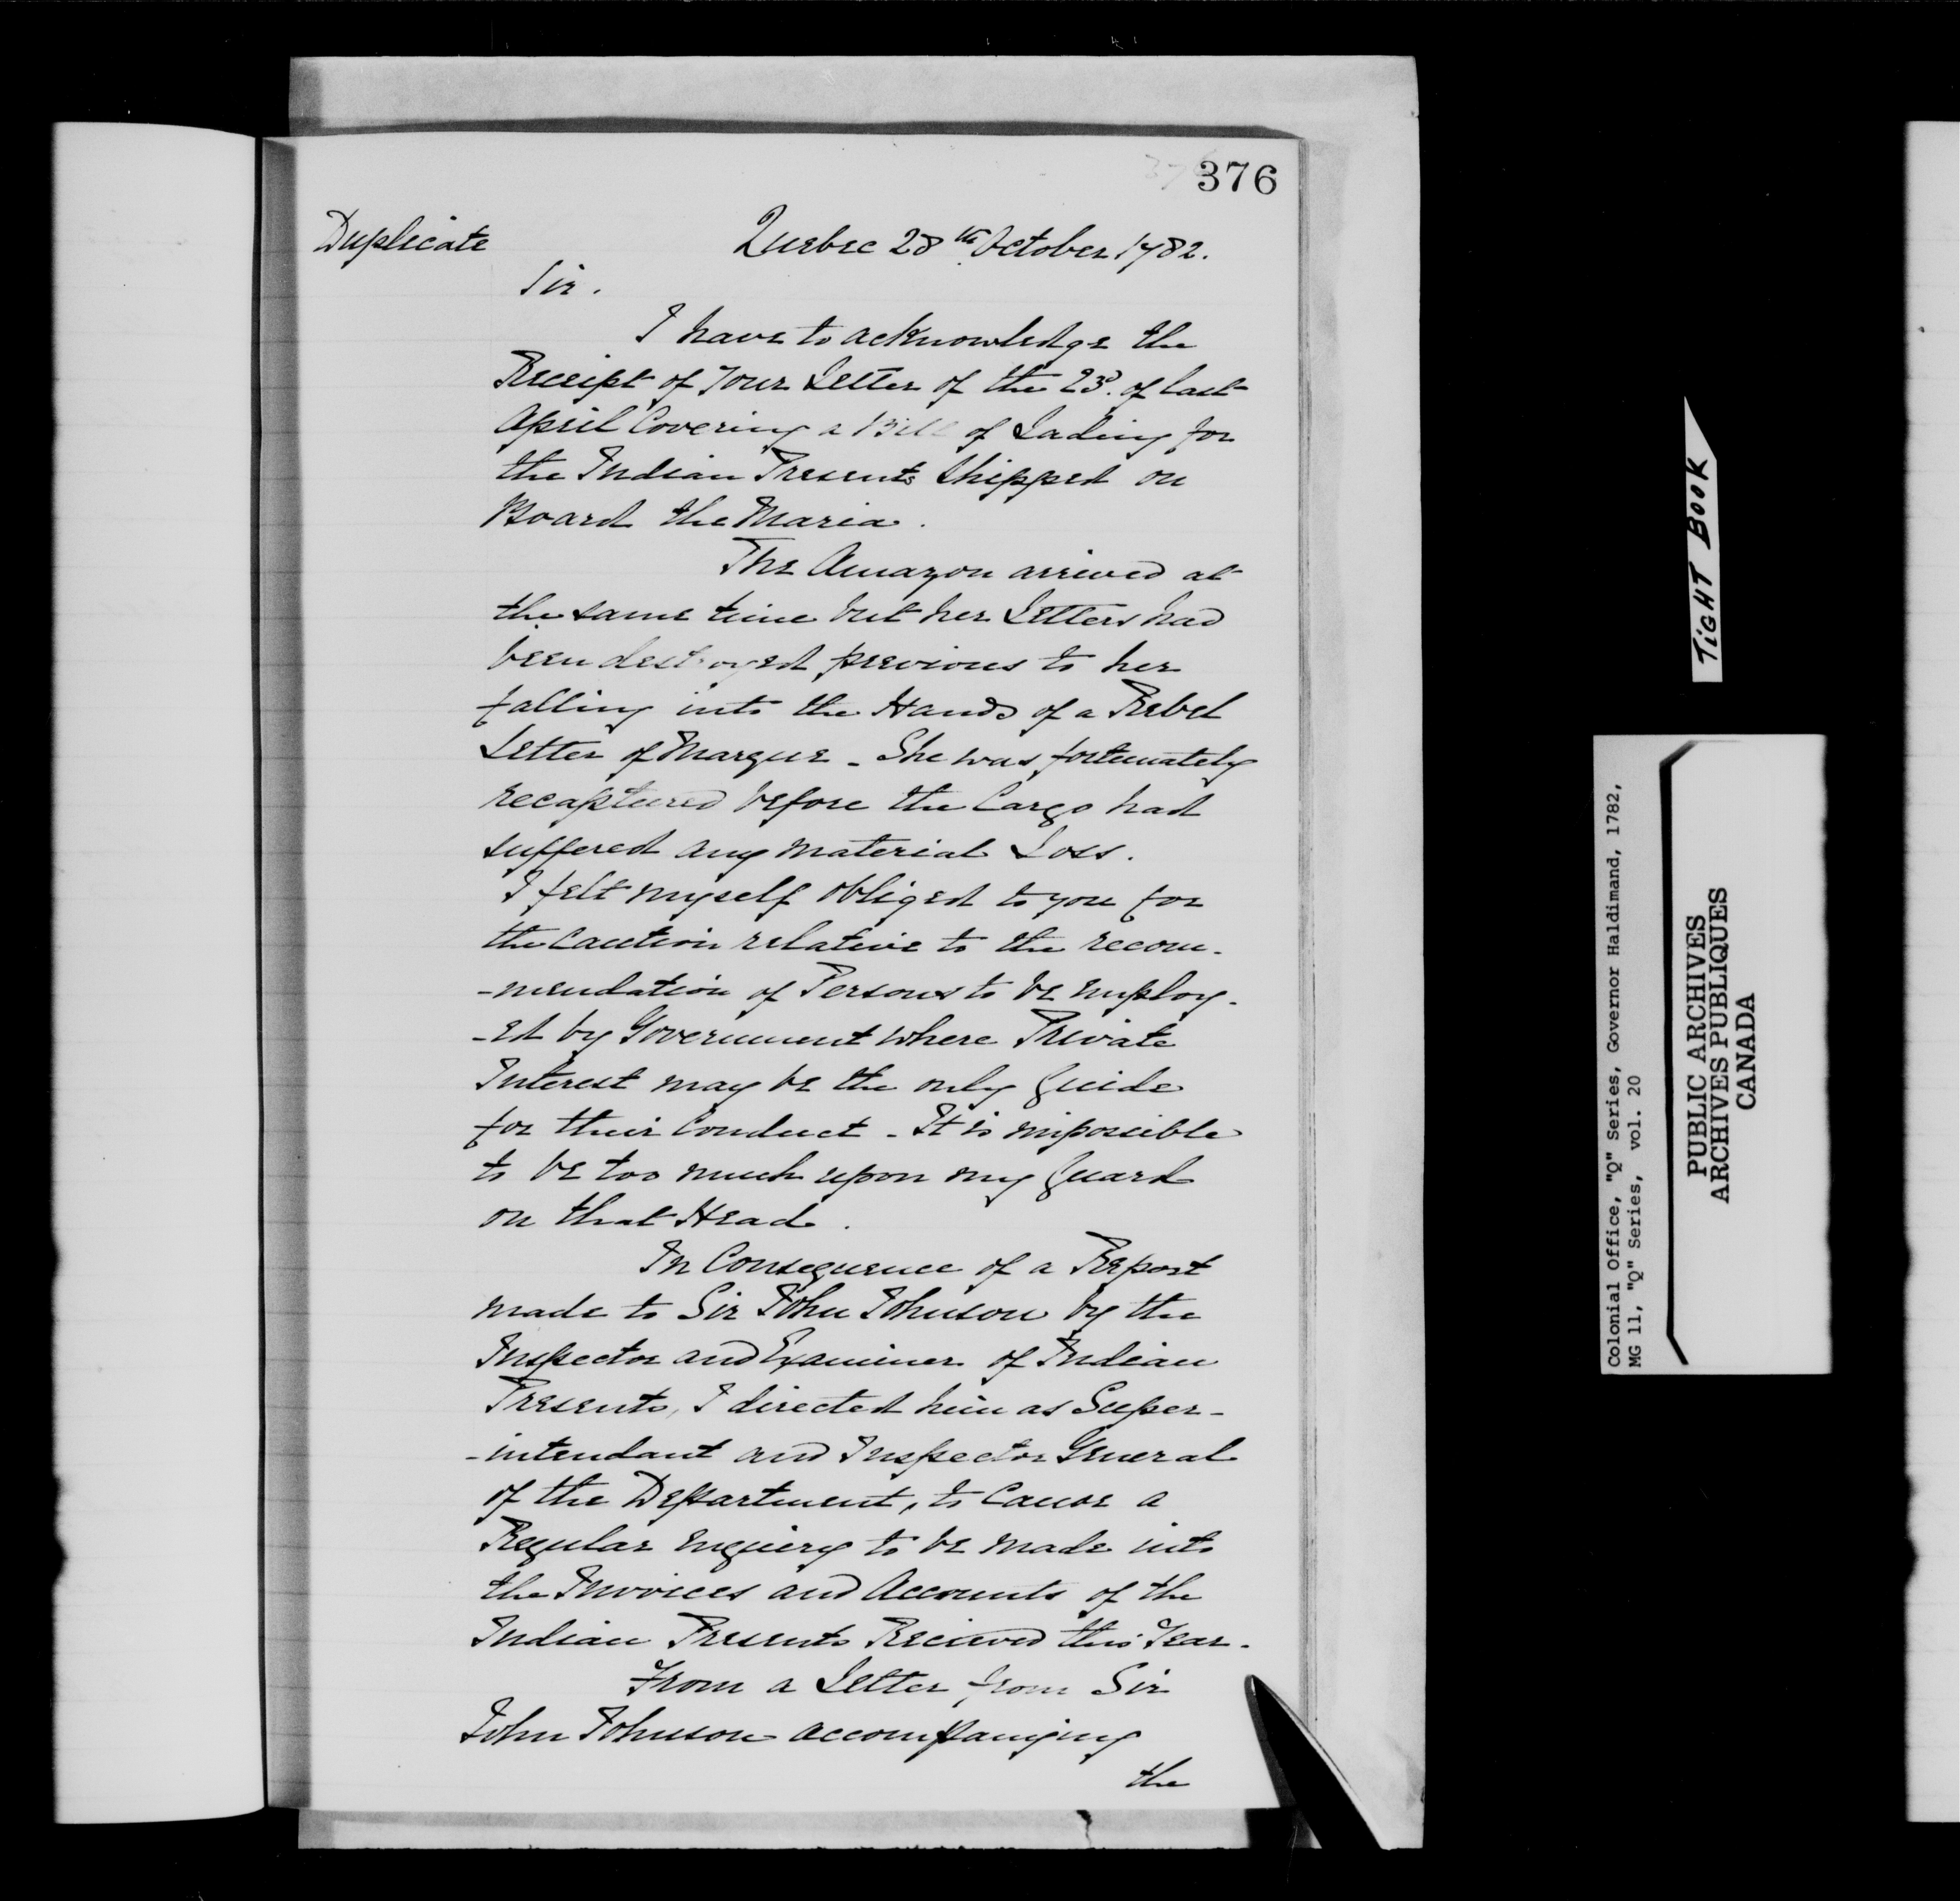 376
Duplicate
Quebec 28th October 1782.
Sir.
I have to acknowledge the
Receipt of your Letter of the 23d. of last
April Covering a Bill of Lading for
the Indian Presents Shipped on
Board the Maria.
The Amazon arrived at
the same time but her Letters had
been destroyed previous to her
falling into the Hands of a Rebel
Letter of Marque - She was fortunately
recaptured before the Cargo had
suffered any material Loss.
I felt myself obliged to you for
the Caution relative to the recom-
-mendation of Persons to be employ-
-ed by Government where Private
Interest may be the only Guide
for their Conduct - It is impossible
to be too much upon my Guard
on that Head.
In Consequence of a Report
made to Sir John Johnson by the
Inspector and Examiner of Indian
Presents, I directed him as Super-
-intendant and Inspector General
of the Department, to Cause a
Regular enquiry to be made into
the Invoices and Accounts of the
Indian Presents Recieved this Year.
From a Letter from Sir
John Johnson accompanying
the
TIGHT BOOK
Colonial Office, "Q" Series, Governor Haldimand, 1782,
MG 11, "Q" Series, vol. 20
PUBLIC ARCHIVES
ARCHIVES PUBLIQUES
CANADA